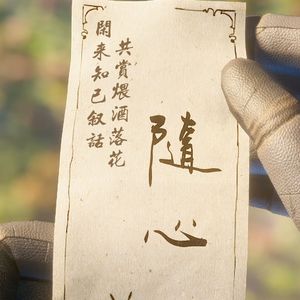 閑来知己叙話
共賞煨酒落花
隨心